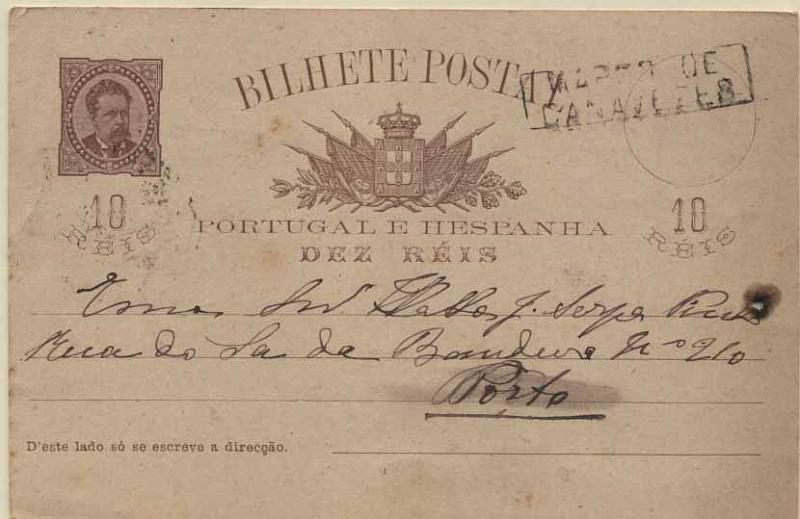 BILHETE POSTAL
DE
CANAVEZES
10
RÉIS
10
RÉIS
PORTUGAL E HESPANHA
DEZ RÉIS
Serpa Pinto
Rua do Sá da Bandeira Nº 210
Porto
D'este lado só se escreve a direcção.